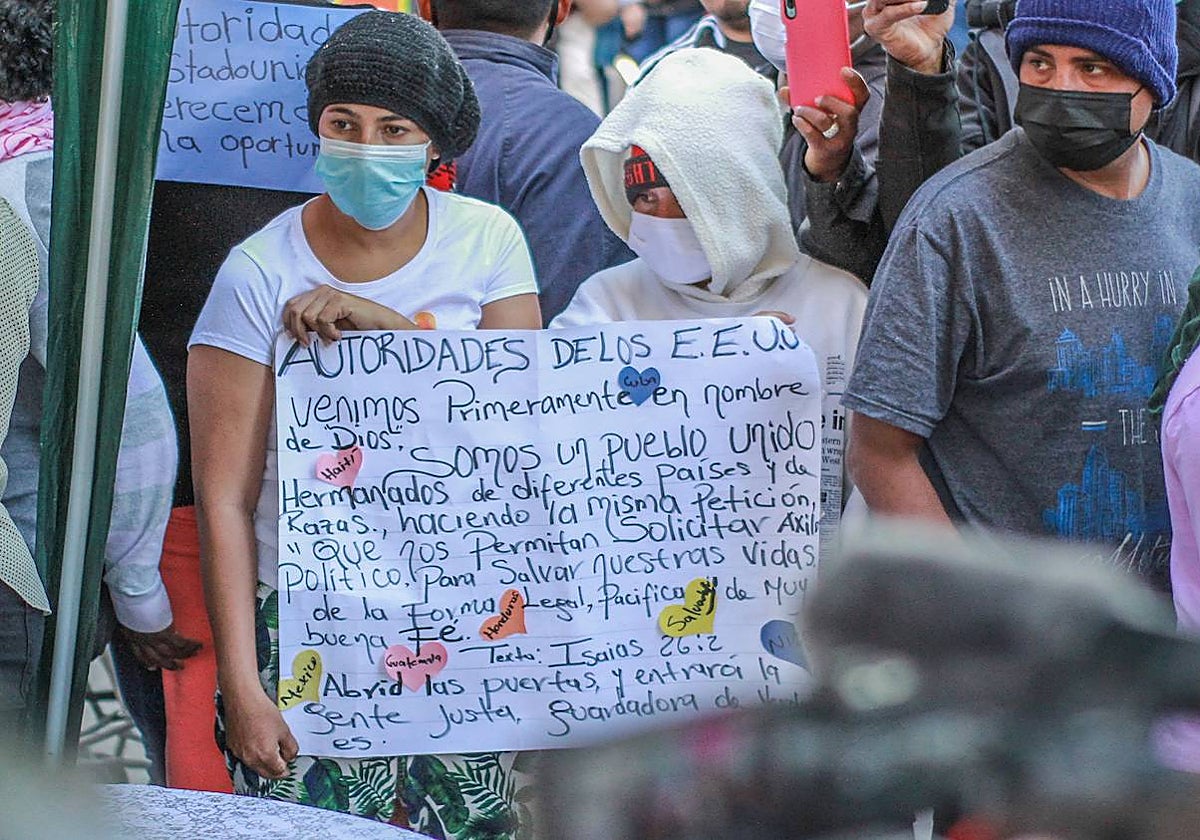 toridad
stadouni
erecemo
la oportun
AUTORIDADES DE LOS E.E.U.U
Cuba
VENIMOS Primeramente en nombre
de "Dios".
Haití
SOMOS un PUEBLO UNIDO
Hermanados de diferentes países y de
Razas., haciendo la misma Petición,
"QUE nos Permitan Solicitar Axilo
Político, Para Salvar nuestras vidas,
de la Forma Legal, Pacifica y de Muy
Honduras
Salvador
buena Fé.
Texto: Isaias 26:2
Guatemala
Mexico
Abrid las puertas, y entrará la
Gente Justa, guardadora de
es.
IN A HURRY IN
THE